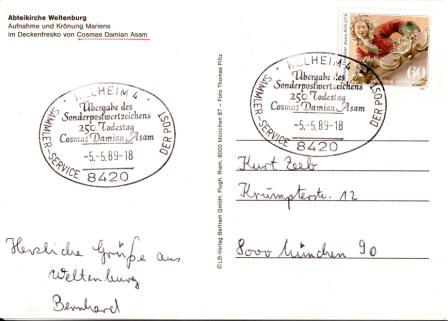 Abteikirche Weltenburg
Aufnahme und Krönung Mariens
im Deckenfresko von Cosmas Damian Asam
KELHEIM 4
Übergabe des
Sonderpostwertzeichens
250. Todestag
Cosmas Damian Asam
-5.-5.89-18
SAMMLER-SERVICE
DER POST
8420
KELHEIM 4
Übergabe des
Sonderpostwertzeichens
250. Todestag
Cosmas Damian Asam
-5.-5.89-18
SAMMLER-SERVICE
DER POST
8420
60
© LB-Verlag Bertram GmbH, Flugh. Riem, 8000 München 87 - Foto Thomas Pritz
Kurt Zeeb
Krumpterstr. 12
8000 München 90
Herzliche Grüße aus
Weltenburg
Bernhard